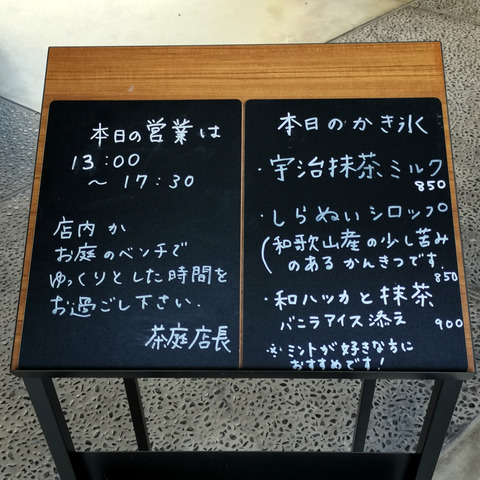 本日の営業は
13:00
～17:30
店内か
お庭のベンチで
ゆっくりとした時間を
お過ごし下さい.
茶庭店長
本日のかき氷
・宇治抹茶ミルク
850
・しらぬいシロップ
(和歌山産の少し苦み
のあるかんきつです.
850
・和ハッカと抹茶
バニラアイス添え
900
※ミントが好きな方に
おすすめです!